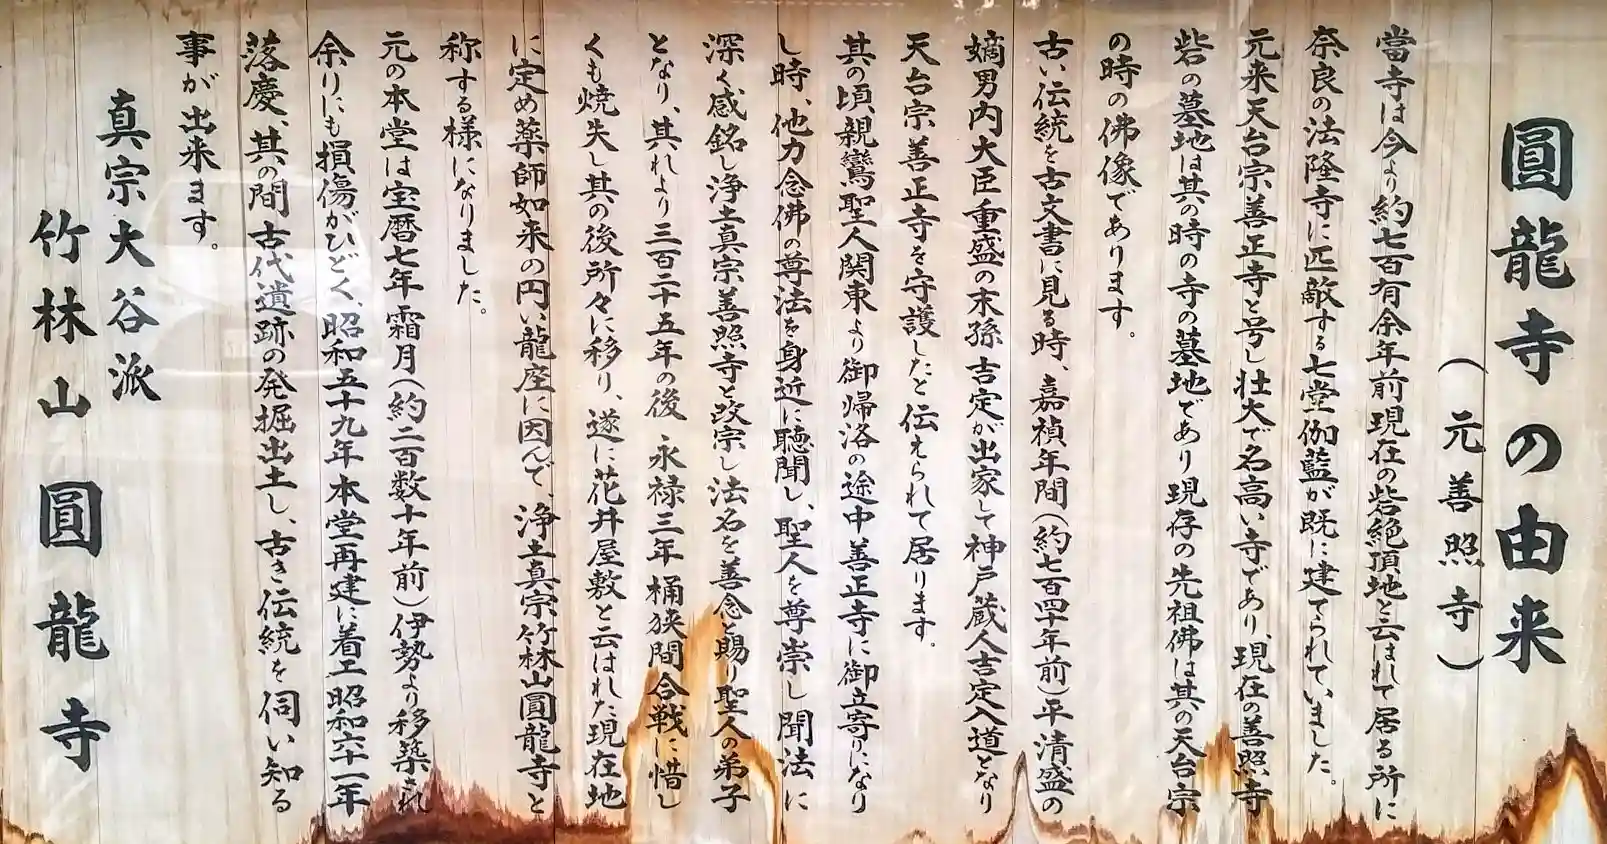 圓龍寺の由来
（元善照寺）
當寺は今より約七百有余年前現在の砦絶頂地と云はれて居る所に
奈良の法隆寺に匹敵する七堂伽藍が既に建てられていました。
元来天台宗善正寺と号し壮大で名高い寺であり、現在の善照寺
砦の墓地は其の時の寺の墓地であり現存の先祖佛は其の天台宗
の時の佛像であります。
古い伝統を古文書に見る時、嘉禎年間（約七百四十年前）平清盛の
嫡男内大臣重盛の末孫吉定が出家して神戸蔵人吉定入道となり
天台宗善正寺を守護したと伝えられて居ります。
其の頃親鸞聖人関東より御帰洛の途中善正寺に御立寄りになり
し時、他力念佛の尊法を身近に聴聞し、聖人を尊崇し聞法に
深く感銘し浄土真宗善照寺と改宗し法名を善念と賜り聖人の弟子
となり、其れより三百二十五年の後 永禄三年 桶狭間合戦に惜し
くも焼失し其の後所々に移り、遂に花井屋敷と云はれた現在地
に定め薬師如来の円い龍座に因んで、浄土真宗竹林山圓龍寺と
称する様になりました。
元の本堂は宝暦七年霜月（約二百数十年前）伊勢より移築され
余りにも損傷がひどく、昭和五十九年本堂再建に着工昭和六十一年
落慶、其の間古代遺跡の発掘出土し、古き伝統を伺い知る
事が出来ます。
真宗大谷派
竹林山 圓龍寺